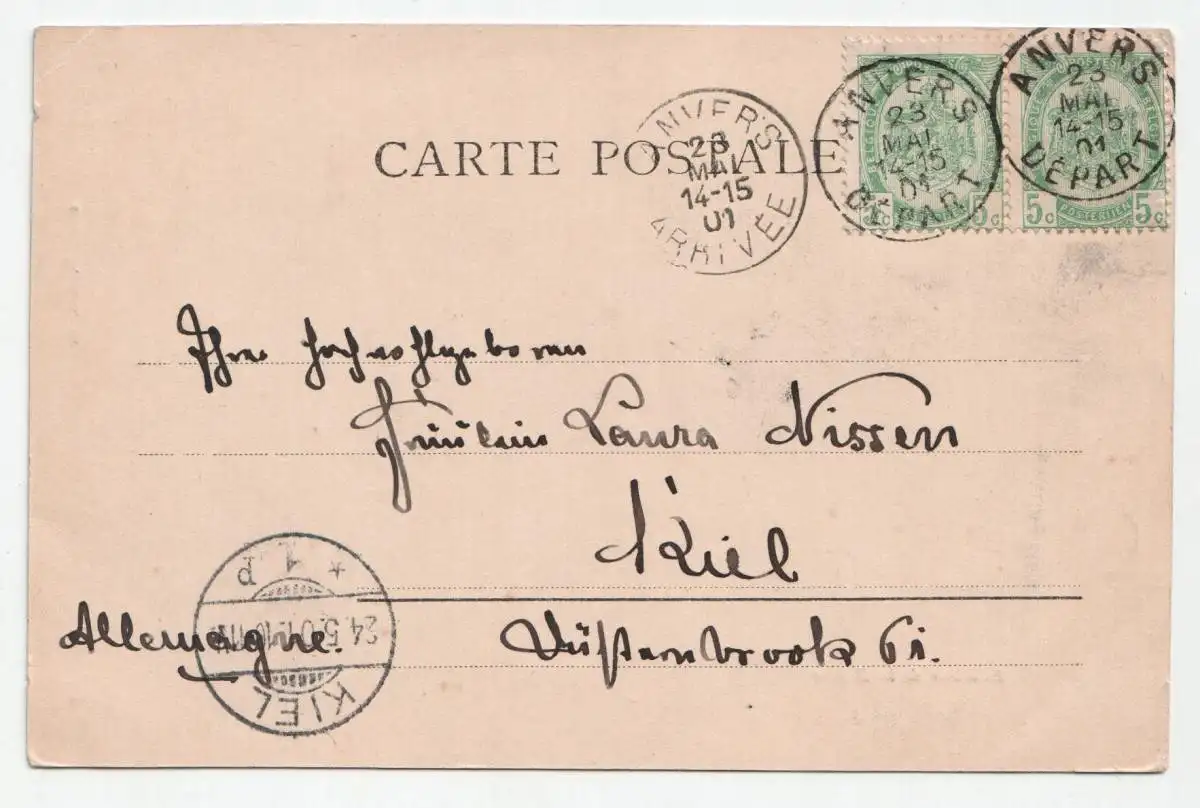 CARTE POSTALE
ANVERS
23
MAI
14-15
01
ARRIVÉE
ANVERS
23
MAI
14-15
01
DÉPART
ANVERS
23
MAI
14-15
01
DÉPART
5c
5c
POSTERIJEN
Ihrer Hochwohlgeboren
Fräulein Laura Nissen
Kiel
Allemagne.
Düsternbrook 61.
KIEL
24.5.01
* 1 p